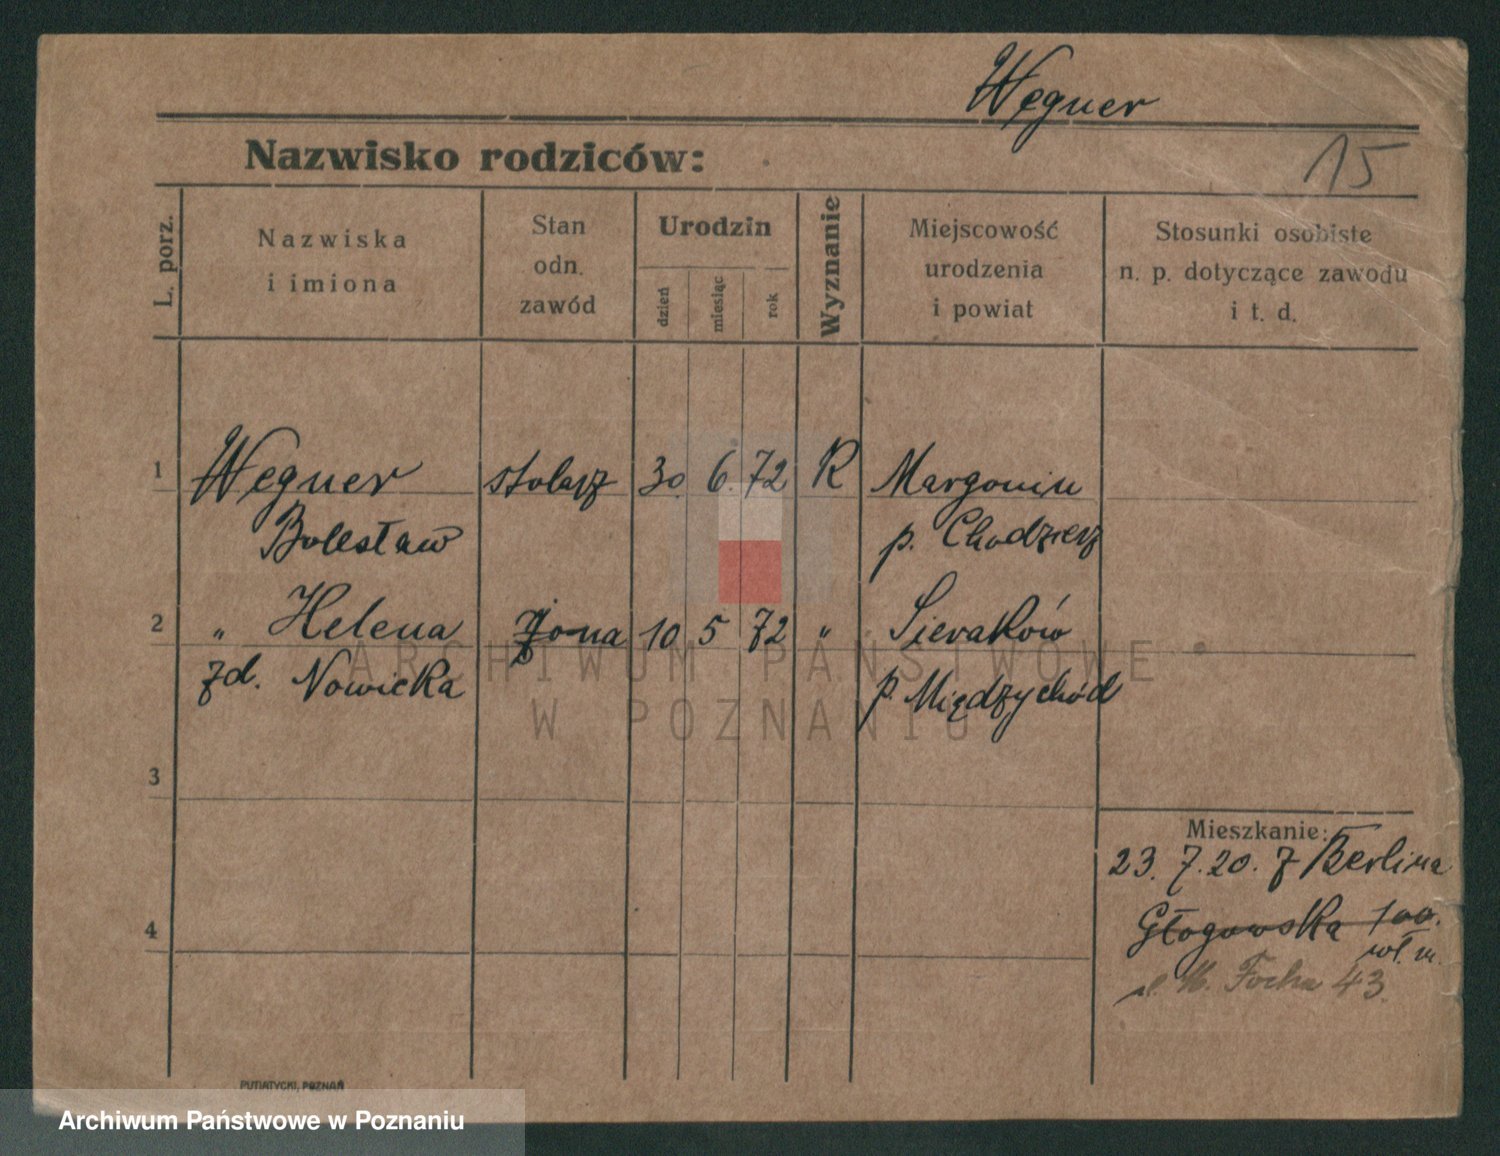 Węgner
15
Nazwisko rodziców:
L. porz.
Nazwiska
i imiona
Stan
odn.
zawód
Urodzin
dzień
miesiąc
rok
Wyznanie
Miejscowość
urodzenia
i powiat
Stosunki osobiste
n. p. dotyczące zawodu
i t. d.
1 Węgner stolarz 30. 6. 72 R Margonin
Bolesław p. Chodzież
2 „ Helena żona 10 5 72 „ Sieraków
zd. Nowicka p. Międzychód
ARCHIWUM PAŃSTWOWE
W POZNANIU
3
Mieszkanie:
23. 7. 20. z Berlina
4
Głogowska 100.
wł. m.
ul. M. Focha 43.
PUTIATYCKI, POZNAŃ
Archiwum Państwowe w Poznaniu